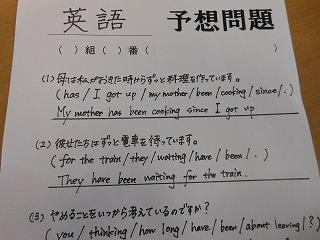 英語 予想問題
( )組( )番(
(1) 母は私がおきた時からずっと料理を作っています。
( has / I got up / my mother / been / cooking / since / . )
My mother has been cooking since I got up
(2) 彼女たちはずっと電車を待っています。
( for the train / they / waiting / have / been / . )
They have been waiting for the train.
(3) やめることをいつから考えているのですか?
( you / thinking / how long / have / been / about leaving / ? )